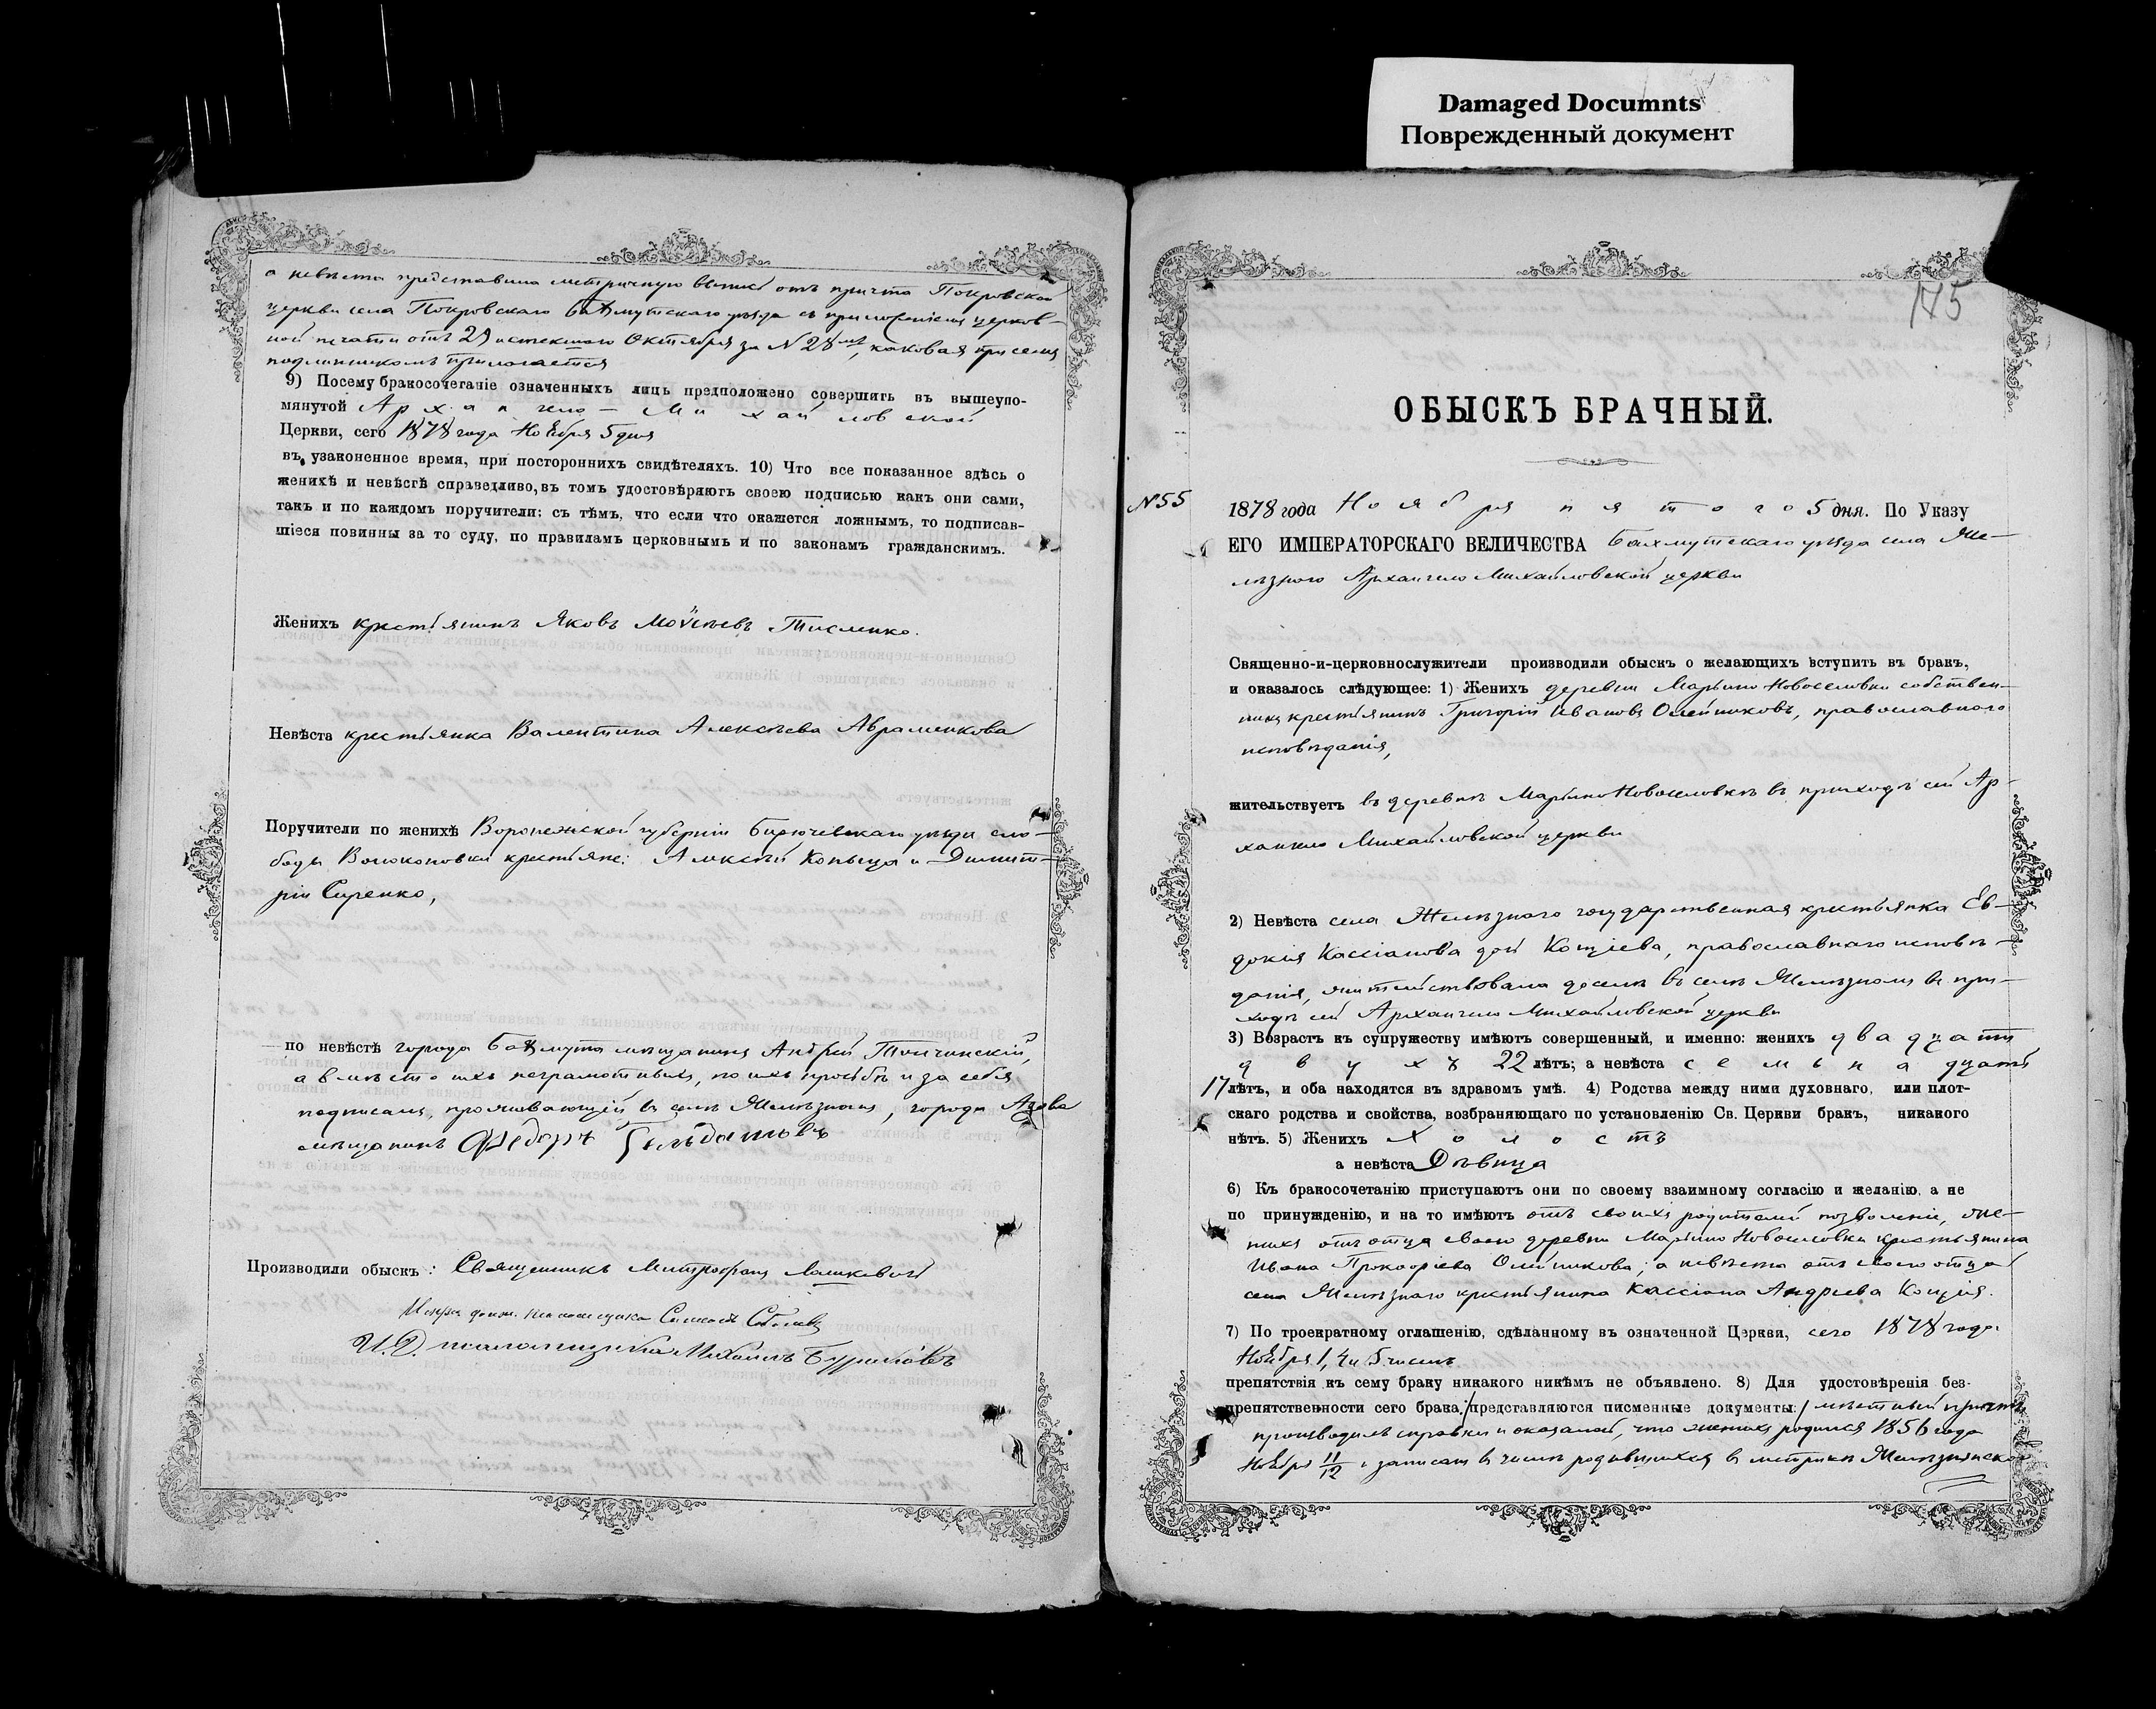 Damaged Documnts
Поврежденный документ
а невѣста представила метричную выпись отъ причта Покровской
церкви села Покровскаго Бахмутскаго уѣзда съ приложеніемъ церков-
ной печати отъ 29 истекшаго Октября за № 28мъ, каковая при семъ
подлинникомъ прилагается
9) Посему бракосочетаніе означенныхъ лицъ предположено совершить въ вышеупо-
мянутой Архангело-Михайловской
Церкви, сего 1878 года Ноября 5 дня
въ узаконенное время, при постороннихъ свидѣтеляхъ. 10) Что все показанное здѣсь о
женихѣ и невѣстѣ справедливо, въ томъ удостовѣряютъ своею подписью какъ они сами,
такъ и по каждомъ поручители: съ тѣмъ, что если что окажется ложнымъ, то подписав-
шіеся повинны за то суду, по правиламъ церковнымъ и по законамъ гражданскимъ.
Женихъ крестьянинъ Яковъ Моѵсѣевъ Тисленко.
Невѣста крестьянка Валентина Алексѣева Авраменкова
Поручители по женихѣ Воронежской губерніи Бирюченскаго уѣзда сло-
боды Волоконовки крестьяне: Алексѣй Копыца и Димит-
рій Сиренко,
по невѣстѣ города Бахмута мѣщанинъ Андрей Толчинскій,
а вмѣсто ихъ неграмотныхъ, по ихъ просьбѣ и за себя
подписалъ, проживающій въ селѣ Желѣзномъ, города Азова
мѣщанинъ Ѳедоръ
Производили обыскъ: Священникъ Митрофанъ
И. Д. псаломщика Михаилъ
145
ОБЫСКЪ БРАЧНЫЙ.
№55
1878 года Ноября пятого 5 дня. По Указу
ЕГО ИМПЕРАТОРСКАГО ВЕЛИЧЕСТВА Бахмутскаго уѣзда села Же-
лѣзного Архангело Михайловской церкви
Священно-и-церковнослужители производили обыскъ о желающихъ вступить въ бракъ,
и оказалось слѣдующее: 1) Женихъ деревни Марьино Новоселовки собствен-
никъ крестьянинъ Григорій Ивановъ Олейниковъ, православного
исповѣданія,
жительствуетъ въ деревнѣ Марьино Новоселовкѣ въ приходѣ сей Ар-
хангело Михайловской церкви
2) Невѣста села Желѣзного государственная крестьянка Ев-
докія Кассіанова дочь Коцѣева, православнаго исповѣ-
данія, жительствовала доселѣ въ селѣ Желѣзномъ въ при-
ходѣ сей Архангело Михайловской церкви
3) Возрастъ къ супружеству имѣютъ совершенный, и именно: женихъ двадцати
двухъ 22 лѣтъ; а невѣста семьнадцати
17 лѣтъ, и оба находятся въ здравомъ умѣ. 4) Родства между ними духовнаго, или плот-
скаго родства и свойства, возбраняющаго по установленію Св. Церкви бракъ, никакого
нѣтъ. 5) Женихъ холостъ
а невѣста Дѣвица
6) Къ бракосочетанію приступаютъ они по своему взаимному согласію и желанію, а не
по принужденію, и на то имѣютъ отъ своихъ родителей позволеніе, же-
нихъ отъ отца своего деревни Марьино Новоселовки крестьянина
Ивана Прокофіева Олейникова; а невѣста отъ своего отца
села Желѣзнаго крестьянина Кассіана Андреева Коцѣя.
7) По троекратному оглашенію, сдѣланному въ означенной Церкви, сего 1878 года
Ноября 1, 4 и 5 числъ
препятствія къ сему браку никакого никѣмъ не объявлено. 8) Для удостовѣренія без-
препятственности сего брака, представляются писменные документы: мѣстный причтъ
производилъ справки и оказалось, что женихъ родился 1856 года
Ноября 11/12 и записанъ въ числѣ родившихся въ метрикѣ Желѣзнянской